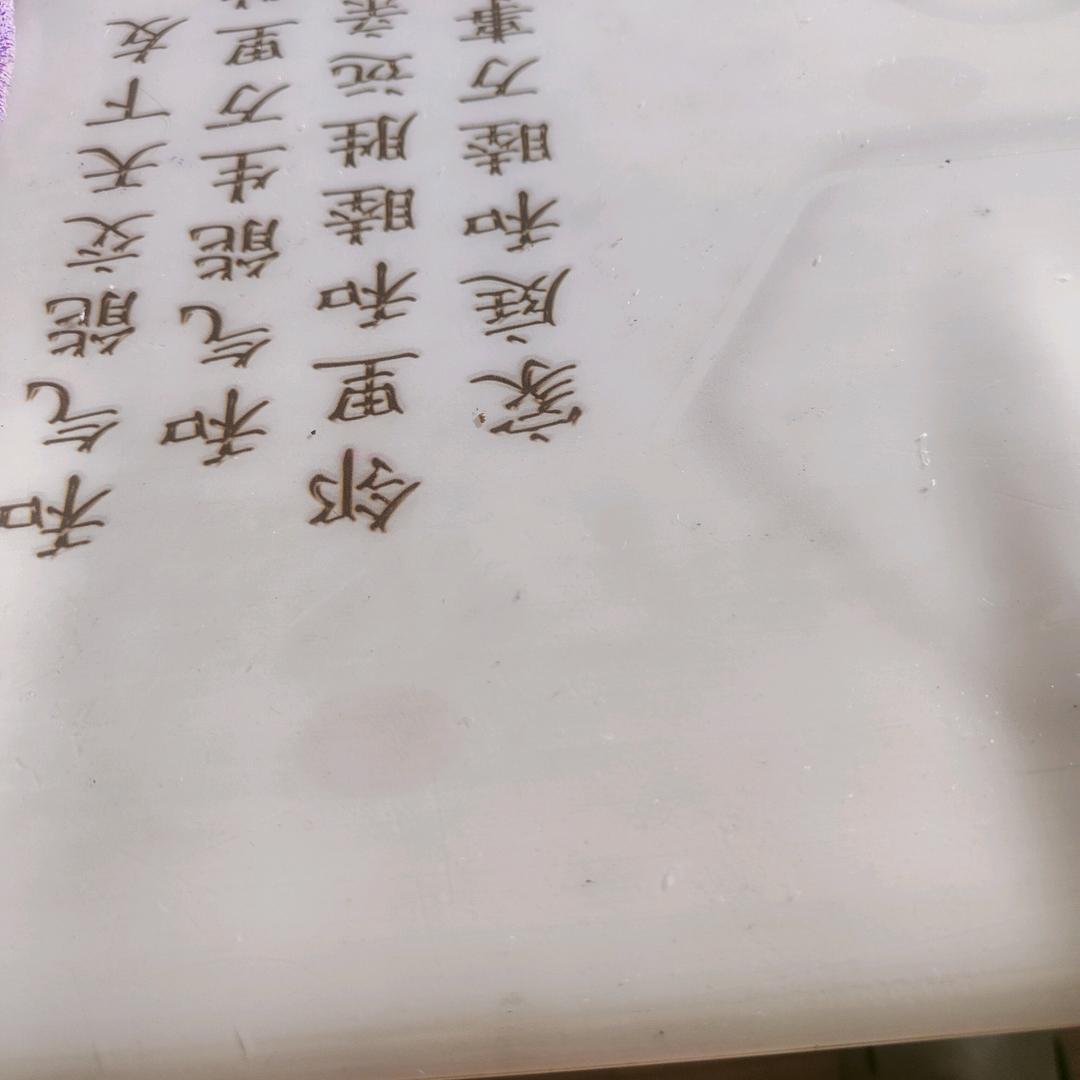 和气能交天下友
和气能生万里
邻里和睦胜远亲
家庭和睦万事